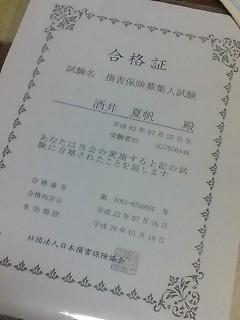 合格証
試験名 損害保険募集人試験
酒井 夏帆 殿
平成02年07月28日生
受験者ID JG7076448
あなたは当会の実施する上記の試
験に合格されたことを証します
合格番号 第 0001-0760861 号
合格判定日 平成22年07月16日
有効期限 平成28年01月16日
社団法人日本損害保険協会